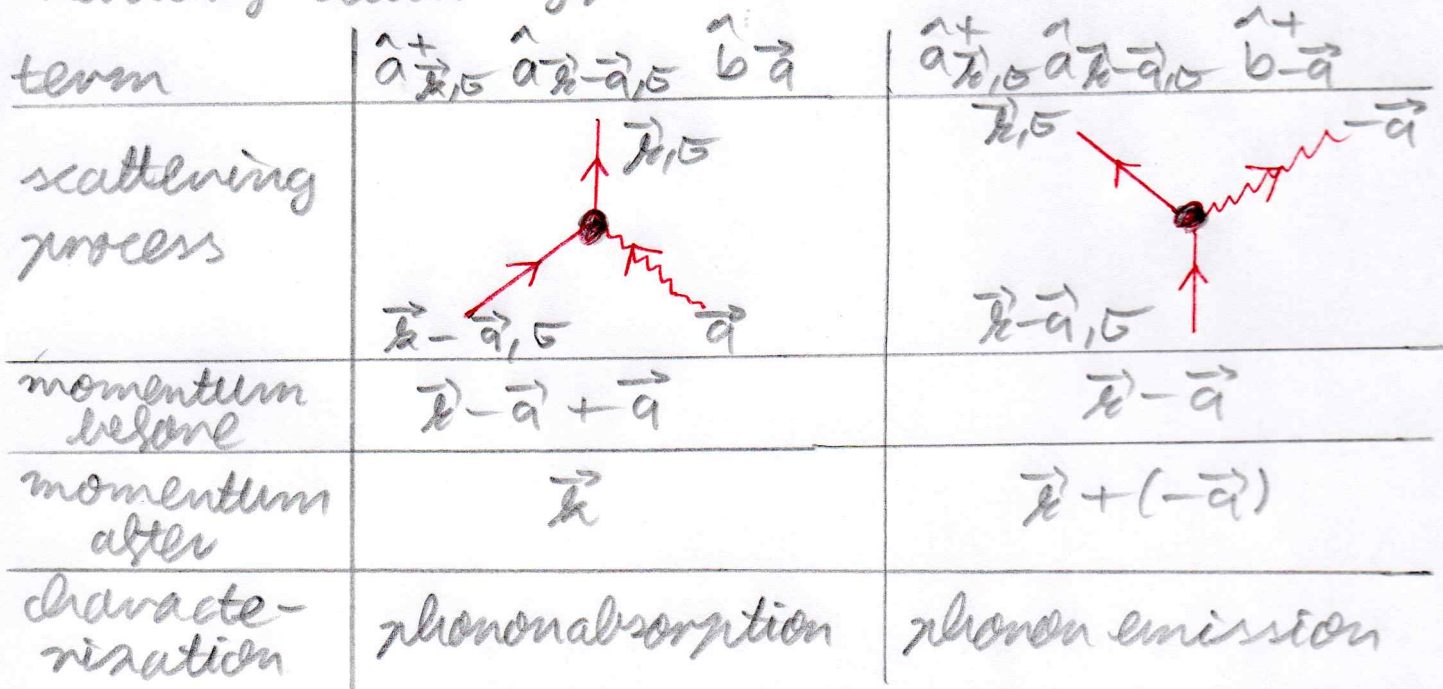 term | â⁺_{k⃗,σ} â_{k⃗-q⃗,σ} b̂_{q⃗} | â⁺_{k⃗,σ} â_{k⃗-q⃗,σ} b̂⁺_{-q⃗}
scattering process
k⃗,σ
k⃗-q⃗,σ q⃗
k⃗,σ -q⃗
k⃗-q⃗,σ
momentum before | k⃗-q⃗ + q⃗ | k⃗-q⃗
momentum after | k⃗ | k⃗ + (-q⃗)
characte-
rization | phonon absorption | phonon emission